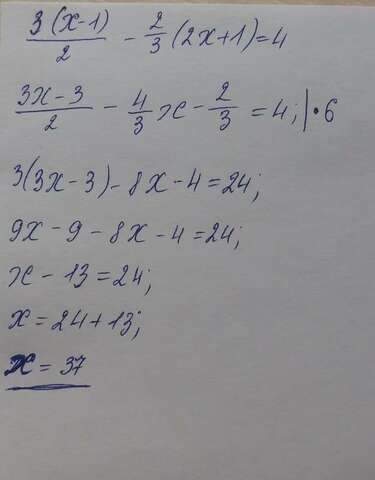 3(x-1)/2 - 2/3(2x+1)=4
3x-3/2 - 4/3x - 2/3 = 4; |·6
3(3x-3)-8x-4=24;
9x-9-8x-4=24;
x-13=24;
x=24+13;
x=37